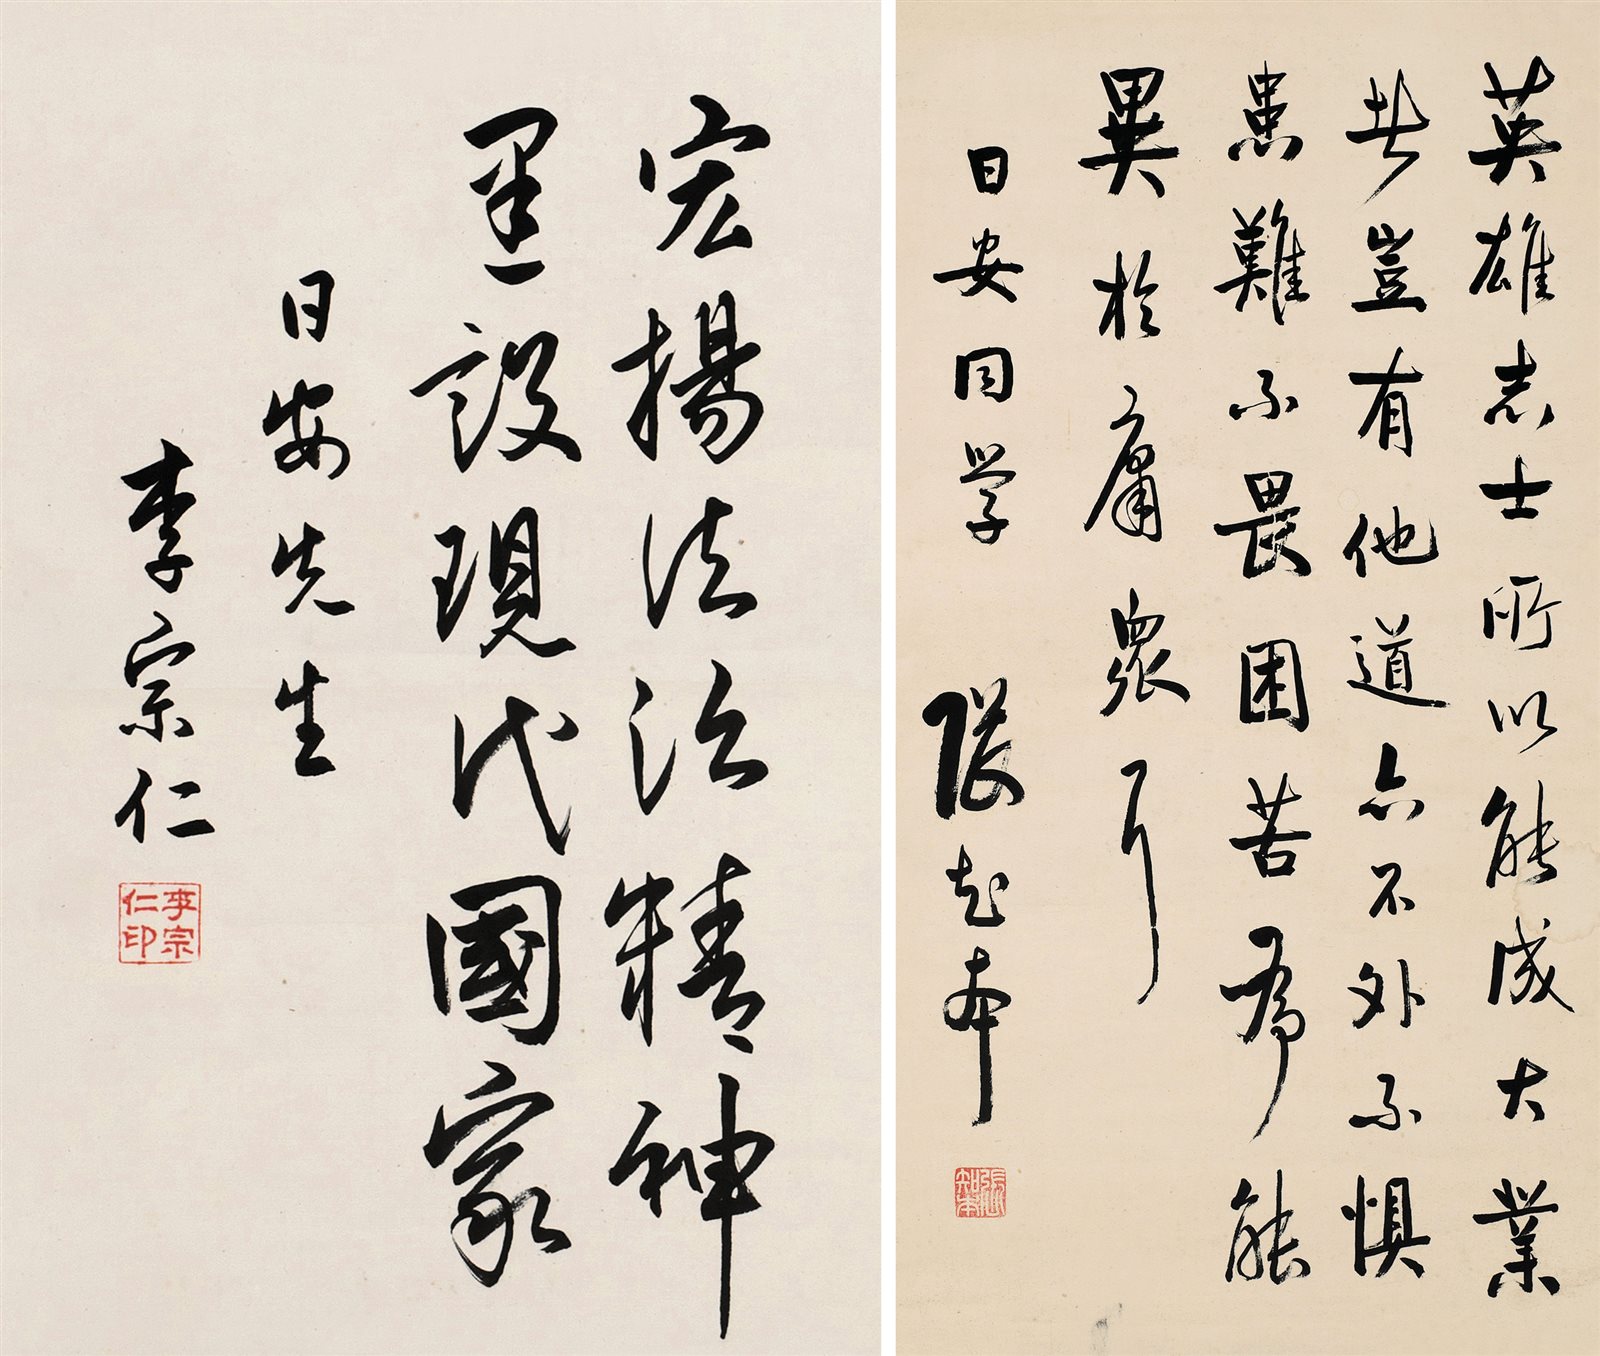 宏揚法治精神
建設現代國家
日安先生
李宗仁
李宗
仁印
英雄志士所以能成大業
者豈有他道亦不外不惧
患難不畏困苦為能
異於庸眾耳
日安同学 張知本